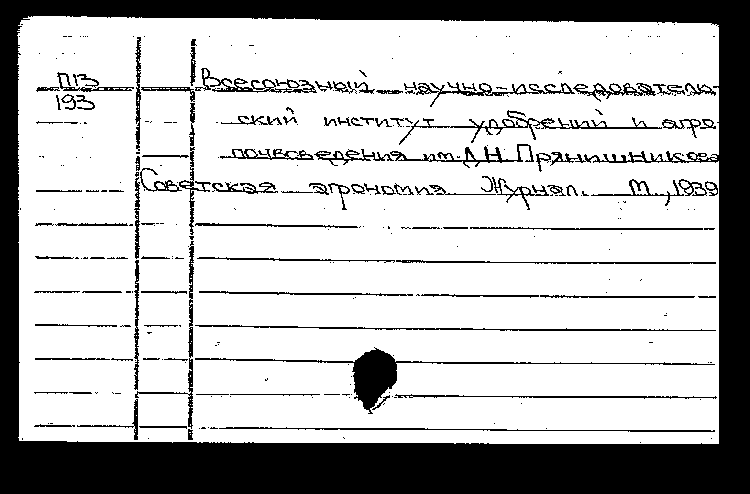 П13
193
Всесоюзный научно-исследователь-
ский институт удобрений и агро-
почвоведения им. Д.Н. Прянишникова
Советская агрономия. Журнал. М., 1939